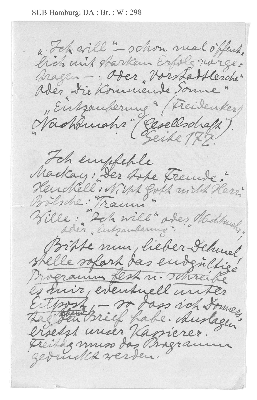 SUB Hamburg, DA : Br. : W : 298
„Ich will" – schon mal öffent-
lich mit starkem Erfolg vorge-
tragen – oder „Vorstadtlerche"
oder „die kommende Sonne"
„Entzauberung" (Freidenker)
„Nachtmahr" (Gesellschaft).
Seite 172
Ich empfehle
Mackay: Der tote Freund.
Henckell: Nicht Gott nicht Herr
Bölsche: Traum
Wille: „Ich will" oder
oder „Entzauberung".
Bitte nun, lieber Dehmel
stelle sofort das endgültige
Programm fest u. schicke
es mir, eventuell unter
Eilpost, – so dass ich Donners-
tag den Brief habe. Auslagen
ersetzt unser Kassierer.
Freitag muss das Programm
gedruckt werden.